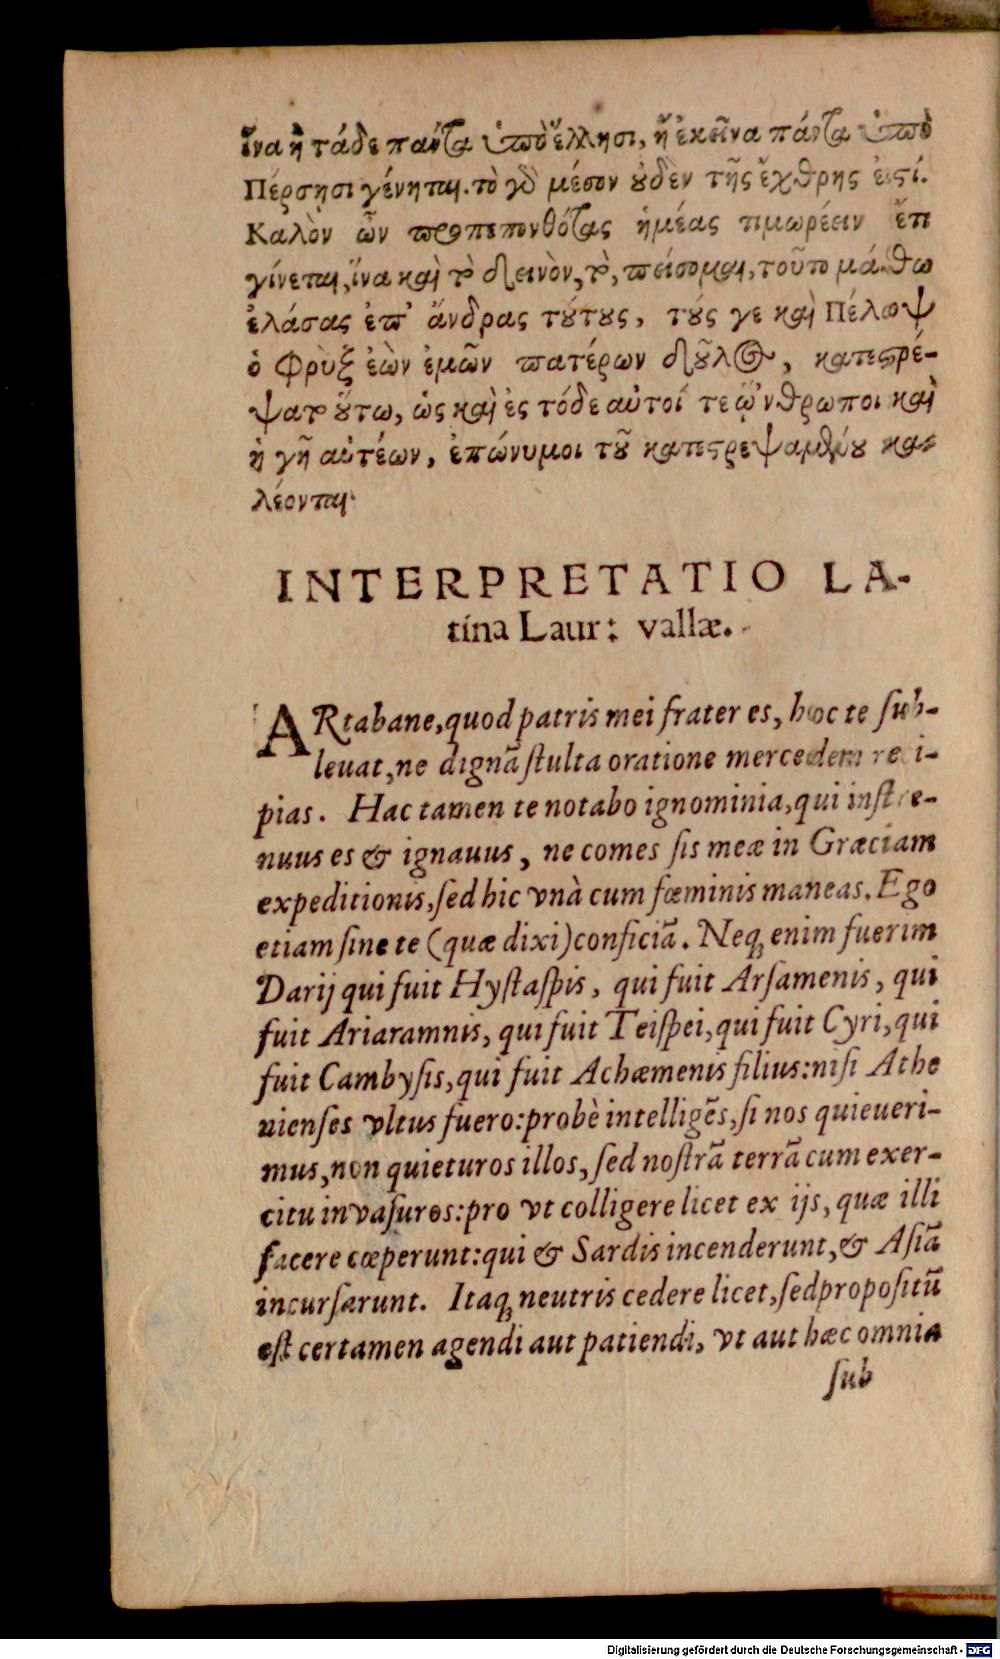 ἵνα ἢ τάδε πάντα ὑπὸ ἕλλησι, ἢ ἐκεῖνα πάντα ὑπὸ
Πέρσῃσι γένηται. τὸ γὸ μέσον οὐδὲν τῆς ἔχθρης ἐστί.
Καλὸν ὦν προπεπονθότας ἡμέας τιμωρέειν ἔπι
γίνεται, ἵνα καὶ τὸ δεινὸν, τὸ, πείσομαι, τοῦτο μάθω
ἐλάσας ἐπ' ἄνδρας τούτους, τούς γε καὶ Πέλοψ
ὁ Φρὺξ ἐὼν ἐμῶν πατέρων δοῦλος, κατεστρέ-
ψατο οὕτω, ὡς καὶ ἐς τόδε αὐτοί τε ὥ'νθρωποι καὶ
ἡ γῆ αὐτέων, ἐπώνυμοι τοῦ καταστρεψαμένου κα-
λέονται.
INTERPRETATIO LA-
tina Laur: vallæ.
ARtabane, quod patris mei frater es, hoc te sub-
leuat, ne dignã stulta oratione mercedem reci-
pias. Hac tamen te notabo ignominia, qui instre-
nuus es & ignauus, ne comes sis meæ in Græciam
expeditionis, sed hic vnà cum fœminis maneas. Ego
etiam sine te (quæ dixi) conficiã. Neq; enim fuerim
Darij qui fuit Hystaspis, qui fuit Arsamenis, qui
fuit Ariaramnis, qui fuit Teispei, qui fuit Cyri, qui
fuit Cambysis, qui fuit Achæmenis filius: nisi Athe
nienses vltus fuero: probè intelligẽs, si nos quieueri-
mus, non quieturos illos, sed nostrã terrã cum exer-
citu inuasuros: pro vt colligere licet ex ijs, quæ illi
facere cœperunt: qui & Sardis incenderunt, & Asiã
incursarunt. Itaq; neutris cedere licet, sed propositũ
est certamen agendi aut patiendi, vt aut hæc omnia
sub
Digitalisierung gefördert durch die Deutsche Forschungsgemeinschaft - DFG